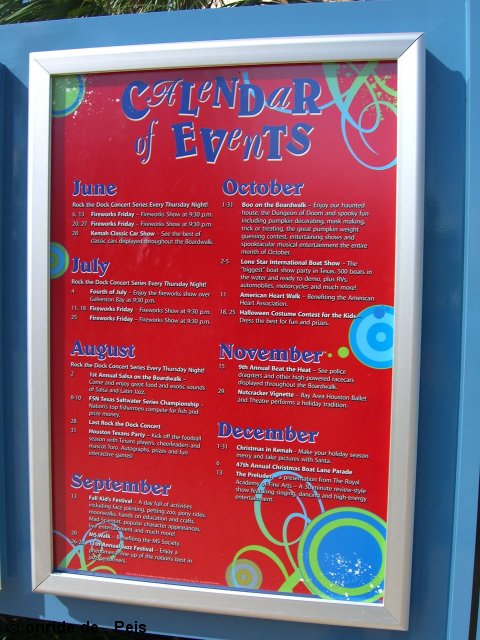 CALENDAR
of EVENTS
June
Rock the Dock Concert Series Every Thursday Night!
6, 13 Fireworks Friday – Fireworks Show at 9:30 p.m.
20, 27 Fireworks Friday – Fireworks Show at 9:30 p.m.
28 Kemah Classic Car Show – See the best of
classic cars displayed throughout the Boardwalk.
July
Rock the Dock Concert Series Every Thursday Night!
4 Fourth of July – Enjoy the fireworks show over
Galveston Bay at 9:30 p.m.
11, 18 Fireworks Friday – Fireworks Show at 9:30 p.m.
25 Fireworks Friday – Fireworks Show at 9:30 p.m.
August
Rock the Dock Concert Series Every Thursday Night!
2 1st Annual Salsa on the Boardwalk –
Come and enjoy great food and exotic sounds
of Salsa and Latin Jazz.
8-10 FSN Texas Saltwater Series Championship –
Nation's top fishermen compete for fish and
prize money.
28 Last Rock the Dock Concert
Houston Texans Party – Kick off the football
season with Texans players, cheerleaders and
mascot Toro. Autographs, prizes and fun
interactive games!
September
13 Fall Kid's Festival – A day full of activities
including face painting, petting zoo, pony rides,
moonwalks, hands on education and crafts,
Mad Scientist, popular character appearances,
live entertainment and much more!
20 MS Walk – Benefiting the MS Society.
Annual Jazz Festival – Enjoy a
phenomenal line up of the nation's best in
performers.
October
1-31 Boo on the Boardwalk – Enjoy our haunted
house, the Dungeon of Doom and spooky fun
including pumpkin decorating, mask making,
trick or treating, the great pumpkin weight
guessing contest, entertaining shows and
spooktacular musical entertainment the entire
month of October.
2-5 Lone Star International Boat Show – The
"biggest" boat show party in Texas. 500 boats in
the water and ready to demo, plus RVs,
automobiles, motorcycles and much more!
11 American Heart Walk – Benefiting the American
Heart Association.
18, 25 Halloween Costume Contest for the Kids –
Dress the best for fun and prizes.
November
15 9th Annual Beat the Heat – See police
dragsters and other high-powered racecars
displayed throughout the Boardwalk.
29 Nutcracker Vignette – Bay Area Houston Ballet
and Theatre performs a holiday tradition.
December
1-31 Christmas in Kemah – Make your holiday season
merry and take pictures with Santa.
6 47th Annual Christmas Boat Lane Parade
13 The Preludes – a presentation from The Royal
Academy of Fine Arts – A 30 minute review-style
show featuring singing, dancing and high-energy
entertainment.
© onride.de - Peis